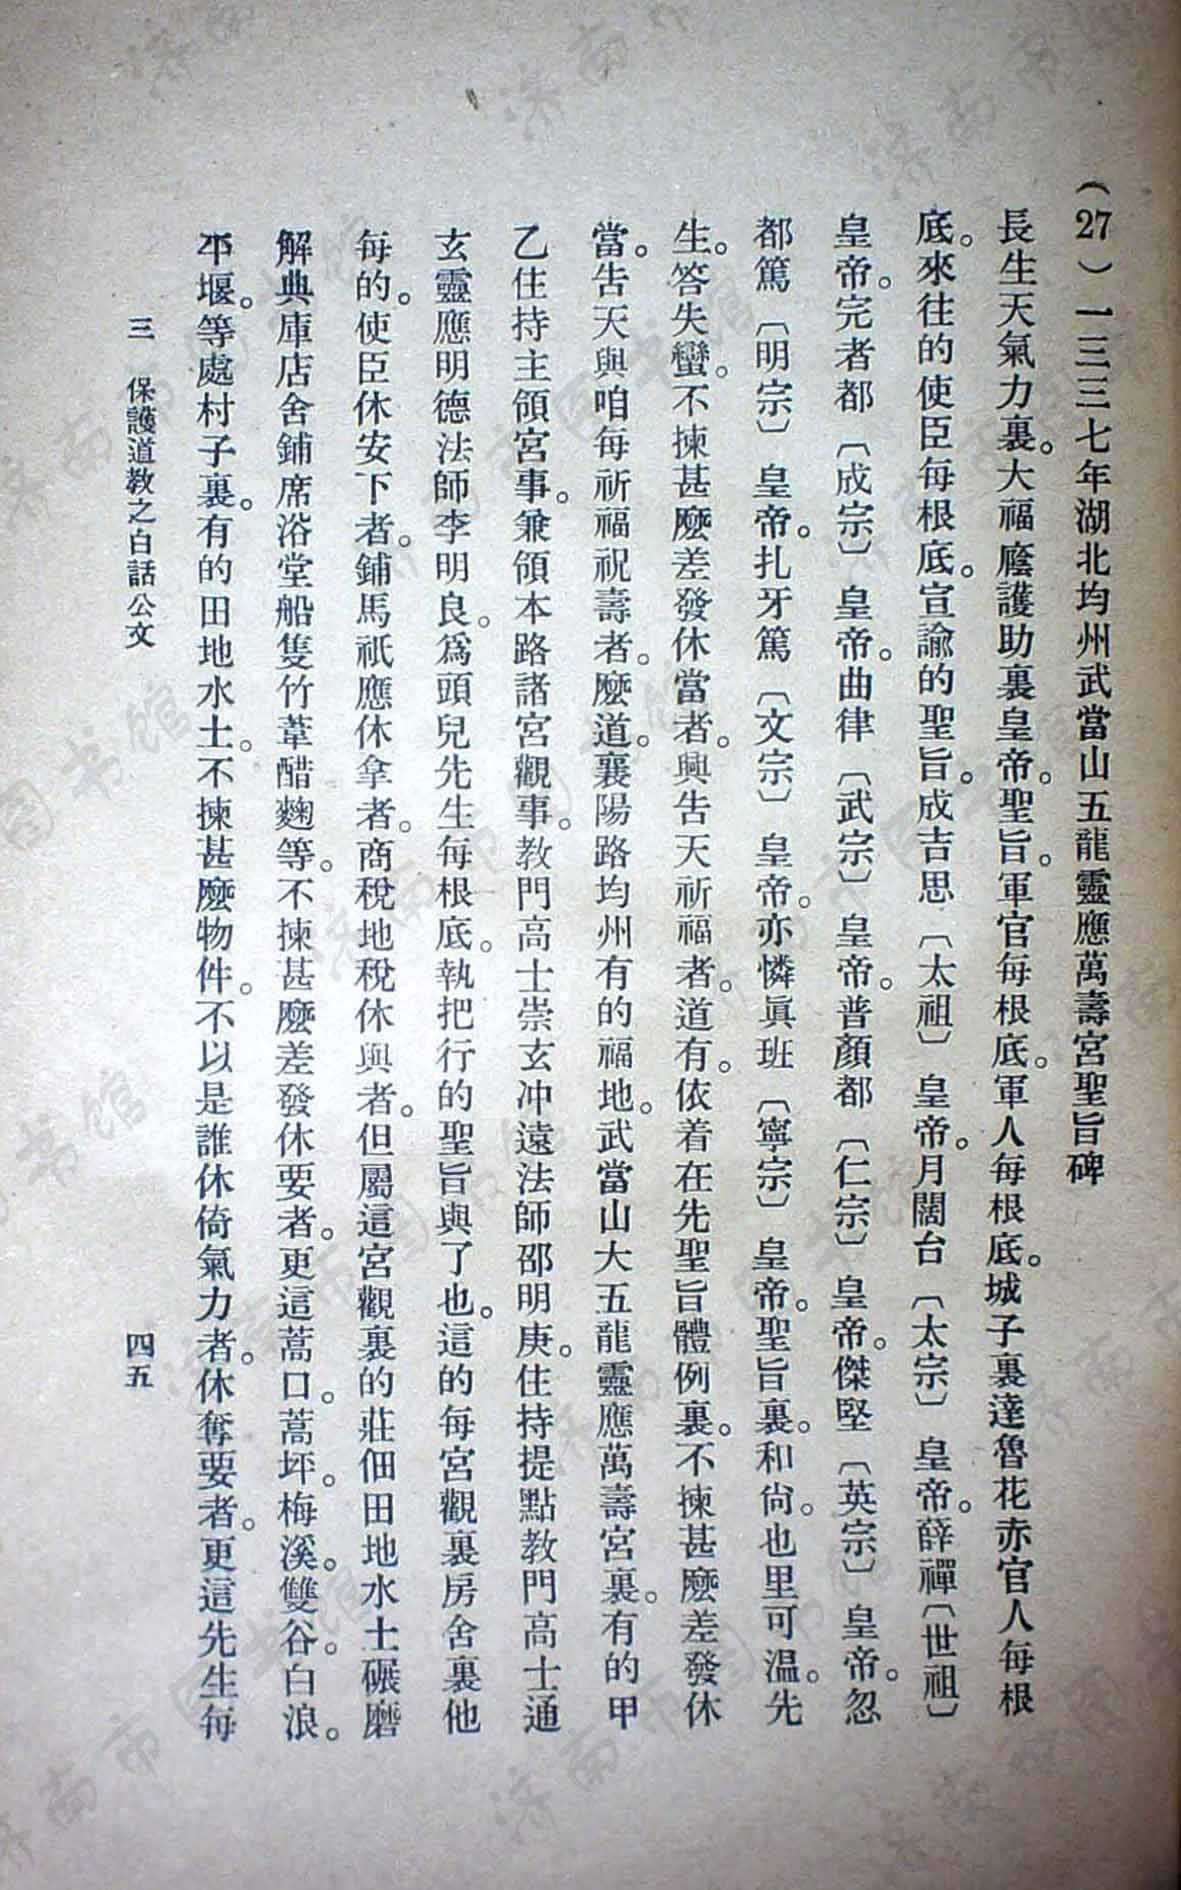 （27）一三三七年湖北均州武當山五龍靈應萬壽宮聖旨碑
長生天氣力裏。大福廕護助裏皇帝。聖旨。軍官每根底。軍人每根底。城子裏達魯花赤官人每根
底。來往的使臣每根底。宣諭的聖旨。成吉思〔太祖〕皇帝。月闊台〔太宗〕皇帝。薛禪〔世祖〕
皇帝。完者都〔成宗〕皇帝。曲律〔武宗〕皇帝。普顏都〔仁宗〕皇帝。傑堅〔英宗〕皇帝。忽
都篤〔明宗〕皇帝。扎牙篤〔文宗〕皇帝。亦憐眞班〔寧宗〕皇帝。聖旨裏。和尙。也里可溫。先
生。答失蠻。不揀甚麼差發休當者。興吿天祈福者。道有。依着在先聖旨體例裏。不揀甚麼差發休
當。吿天與咱每祈福祝壽者。麼道。襄陽路均州有的福地。武當山大五龍靈應萬壽宮裏。有的甲
乙住持主領宮事。兼領本路諸宮觀事。教門高士崇玄冲遠法師邵明庚。住持提點教門高士通
玄靈應明德法師李明良。爲頭兒先生每根底。執把行的聖旨與了也。這的每宮觀裏房舍裏他
每的。使臣休安下者。鋪馬祗應休拿者。商稅地稅休與者。但屬這宮觀裏的莊佃田地水土碾磨
解典庫店舍鋪席浴堂船隻竹葦醋麴等。不揀甚麼差發休要者。更這蒿口。蒿坪。梅溪。雙谷。白浪。
平堰。等處村子裏。有的田地水土。不揀甚麼物件。不以是誰休倚氣力者。休奪要者。更這先生每
三　保護道教之白話公文
四五
济南市图书馆